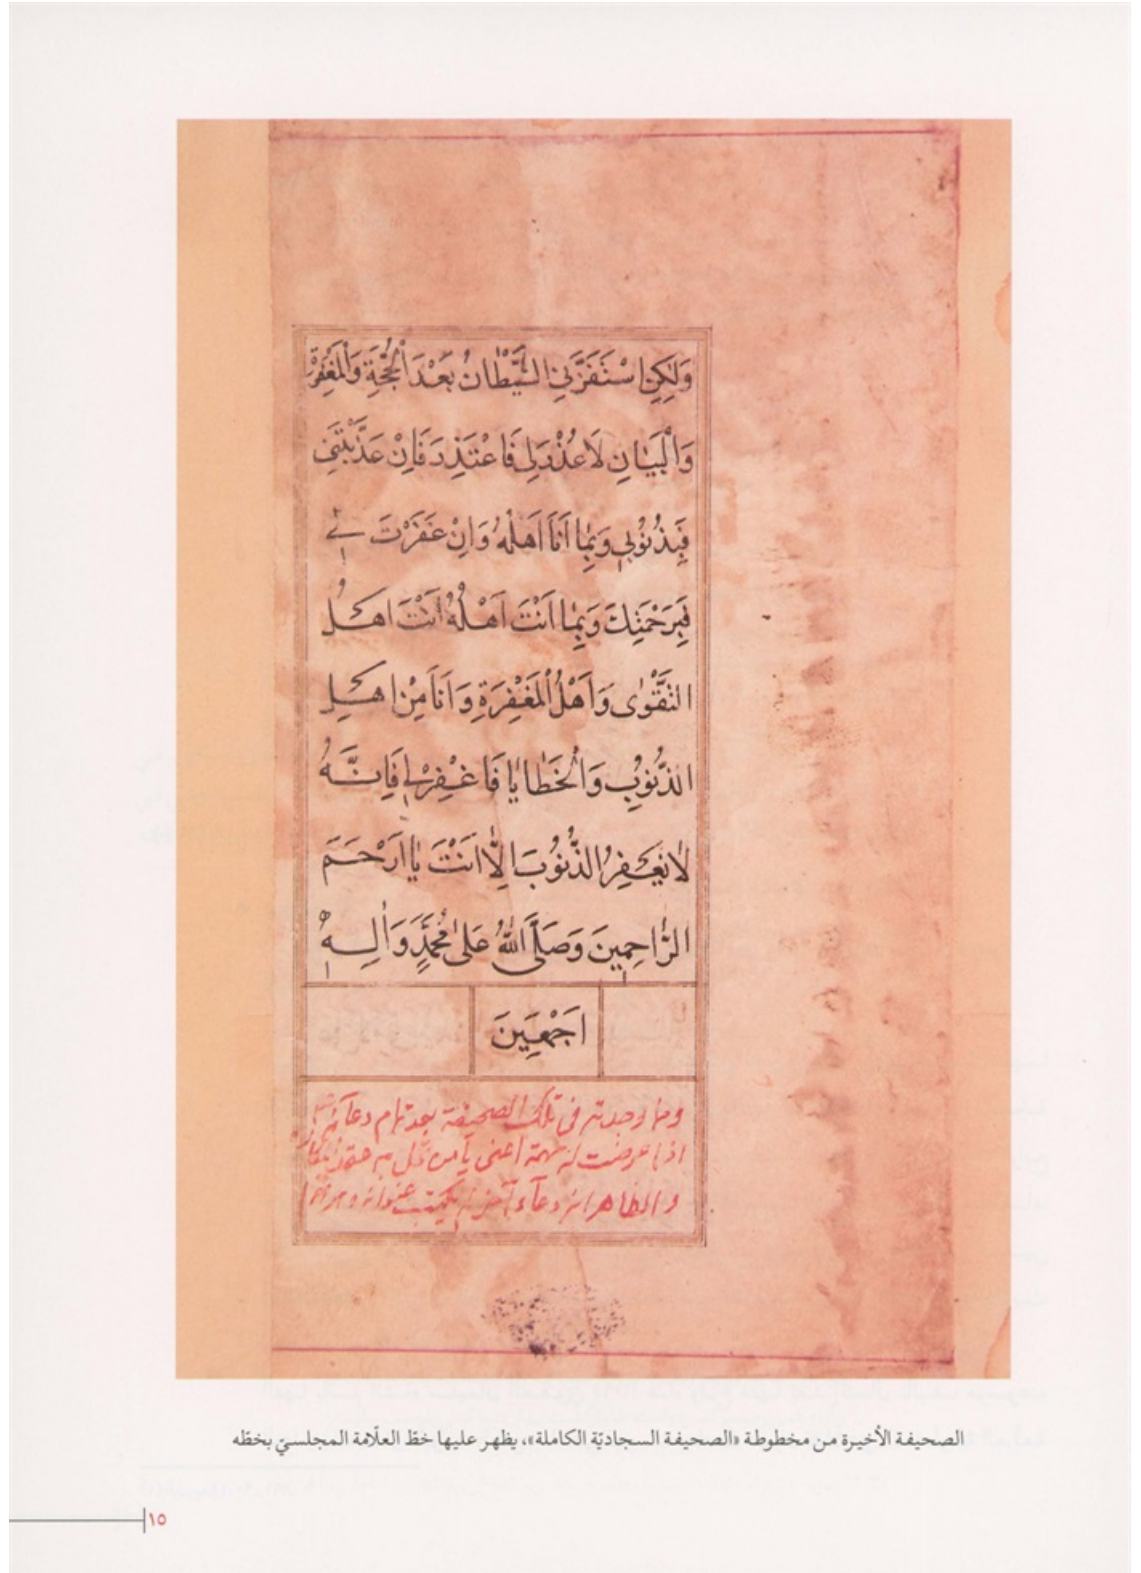 وَلٰكِنِ اسْتَفَزَّنِي الشَّيْطَانُ بَعْدَ الْحُجَّةِ وَالْمَغْفِرَةِ
وَالْبَيَانِ لَا عُذْرَ لِي فَاعْتَذِرَ فَاِنْ عَذَّبْتَنِي
فَبِذُنُوْبِي وَبِمٰا اَنَا اَهْلُهُ وَاِنْ غَفَرْتَ لِي
فَبِرَحْمَتِكَ وَبِمٰا اَنْتَ اَهْلُهُ اَنْتَ اَهْلُ
التَّقْوٰى وَاَهْلُ الْمَغْفِرَةِ وَاَنَا مِنْ اَهْلِ
الذُّنُوْبِ وَالْخَطٰايٰا فَاغْفِرْ لِي فَاِنَّهُ
لٰا يَغْفِرُ الذُّنُوْبَ اِلّٰا اَنْتَ يٰا اَرْحَمَ
الرّٰاحِمِينَ وَصَلَّى اللّٰهُ عَلىٰ مُحَمَّدٍ وَاٰلِهِ
اَجْمَعِينَ
ومما وجدته في تلك الصحيفة بعد تمام دعآئه
اذا عرضت له مهمة اعنى يا من تحل به عقد المكاره
والظاهر انه دعآء آخر لم يكتب عنوانه
الصحيفة الأخيرة من مخطوطة «الصحيفة السجاديّة الكاملة»، يظهر عليها خطّ العلّامة المجلسيّ بخطّه
١٥